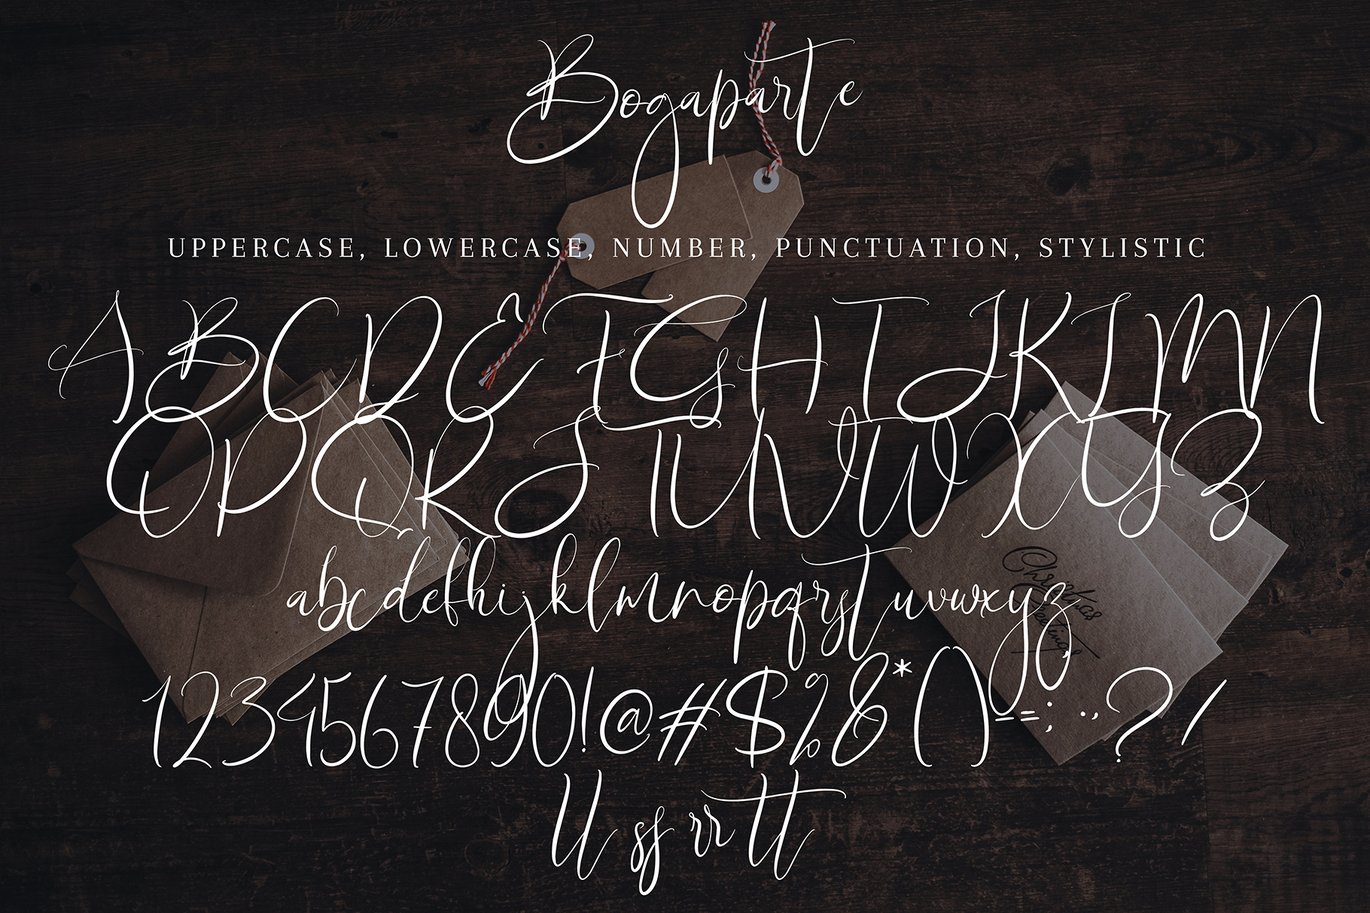 Bogaparte
UPPERCASE, LOWERCASE, NUMBER, PUNCTUATION, STYLISTIC
ABCDEFGHIJKLMN
OPQRSTUVWXYZ
abcdefhijklmnopqrstuvwxyz
1234567890!@#$%&*()-=:;.,?/
ll ss rr tt
Christmas
Greetings